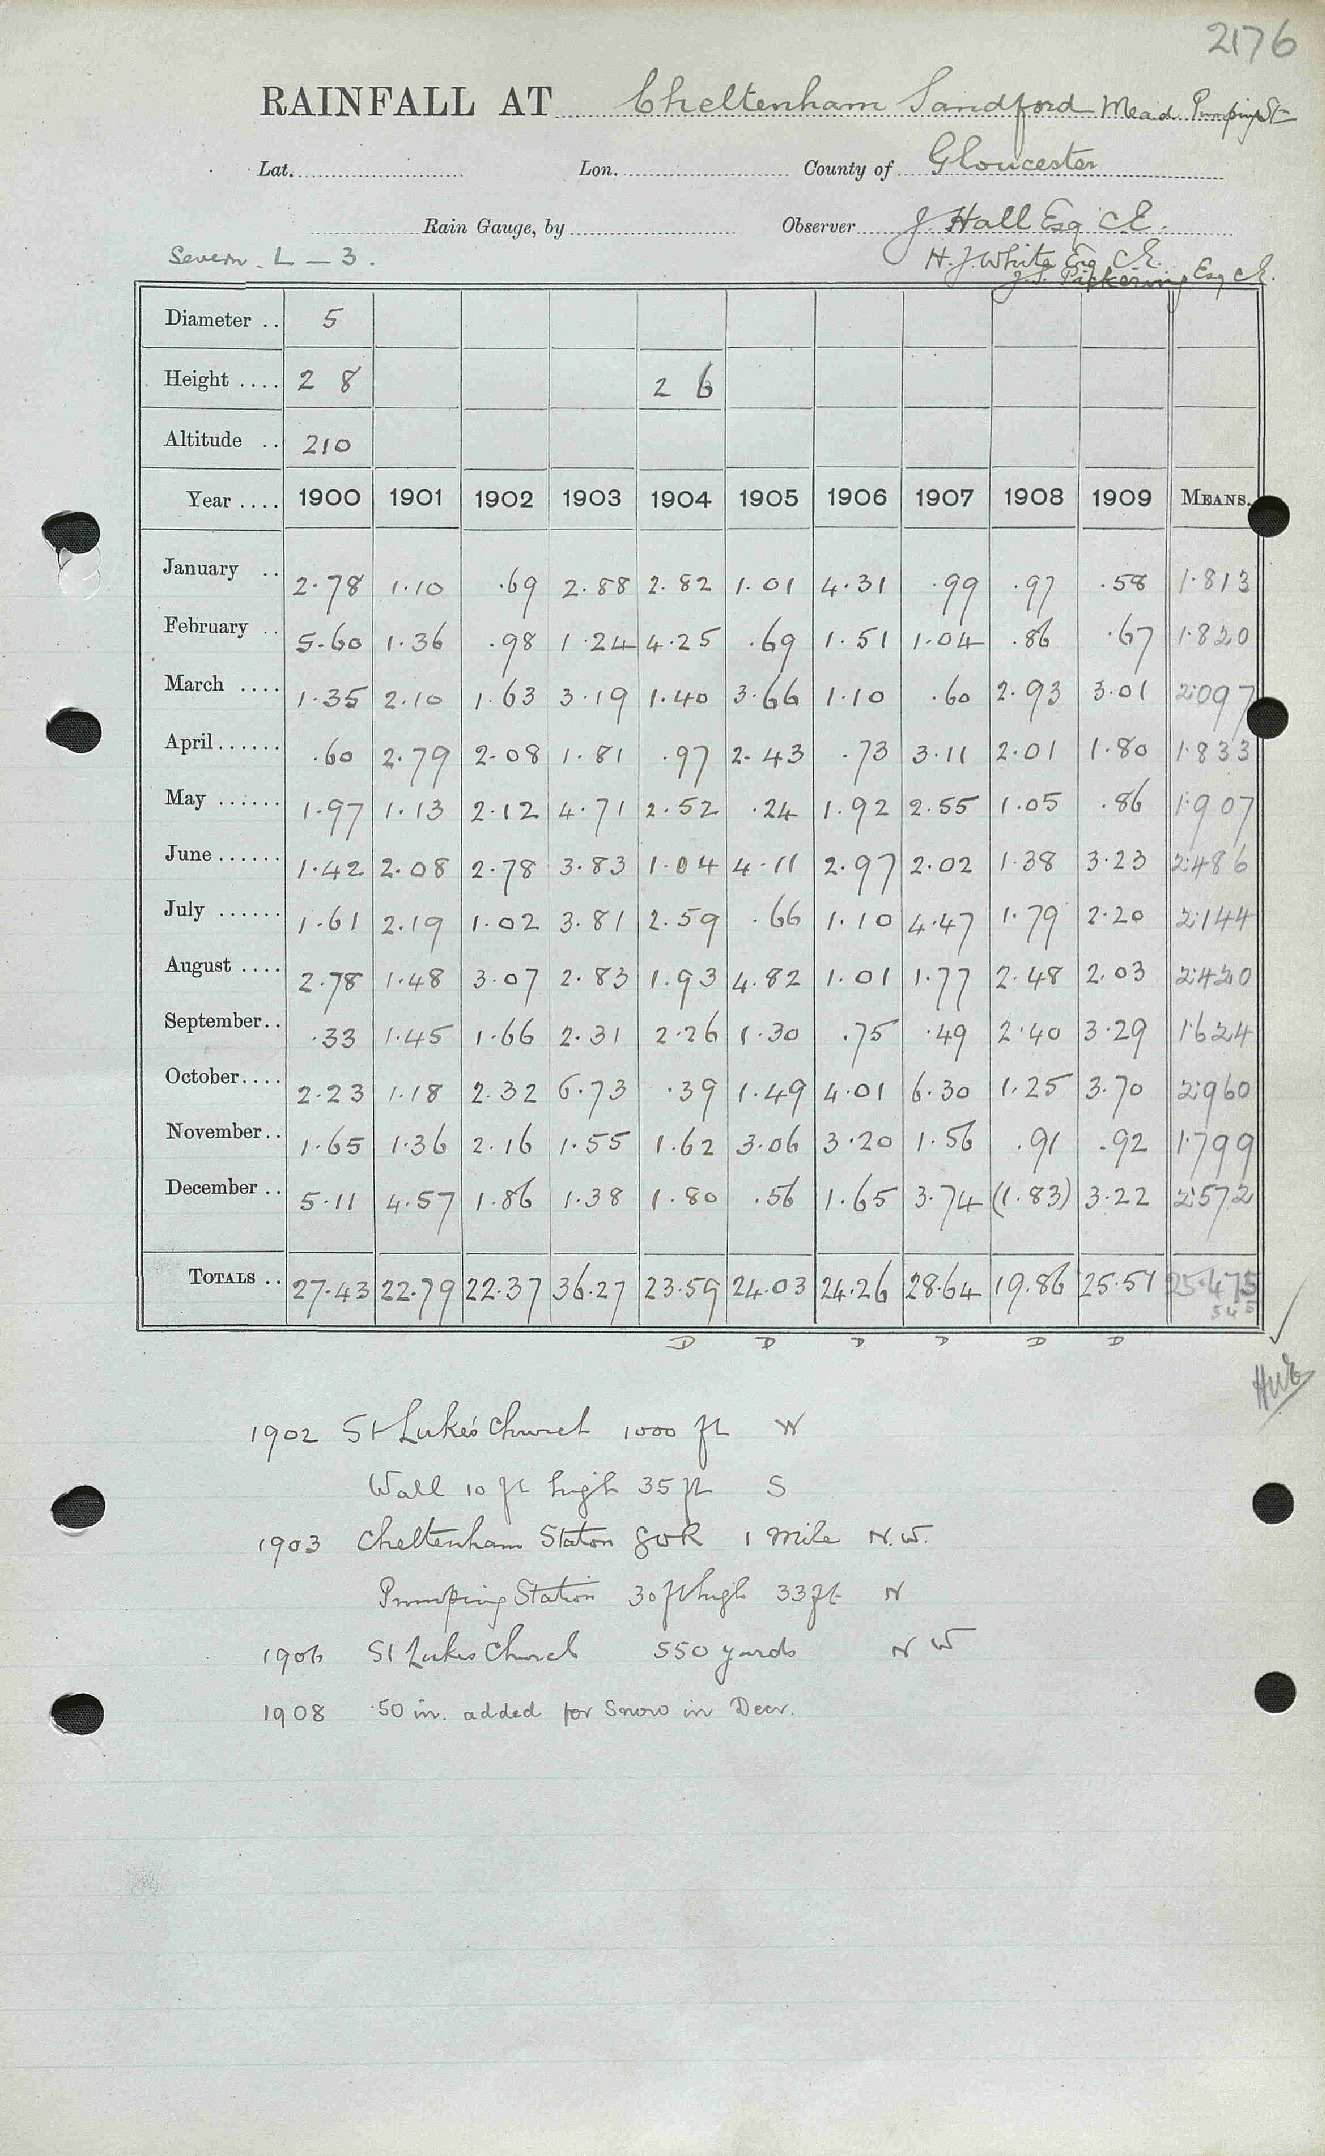 2176
RAINFALL AT Cheltenham Sandford Mead Pumping St
Lat. Lon. County of Gloucester
Rain Gauge, by Observer J. Hall Esq C.E.
Severn. L — 3. H. J. White Esq C.E.
J. S. Pickering Esq C.E.
Diameter .. 5
Height .... 2 8 2 6
Altitude .. 210
Year .... 1900 1901 1902 1903 1904 1905 1906 1907 1908 1909 MEANS.
January .. 2.78 1.10 .69 2.88 2.82 1.01 4.31 .99 .97 .58 1.813
February .. 5.60 1.36 .98 1.24 4.25 .69 1.51 1.04 .86 .67 1.820
March .... 1.35 2.10 1.63 3.19 1.40 3.66 1.10 .60 2.93 3.01 2.097
April ...... .60 2.79 2.08 1.81 .97 2.43 .73 3.11 2.01 1.80 1.833
May ...... 1.97 1.13 2.12 4.71 2.52 .24 1.92 2.55 1.05 .86 1.907
June ...... 1.42 2.08 2.78 3.83 1.04 4.11 2.97 2.02 1.38 3.23 2.486
July ...... 1.61 2.19 1.02 3.81 2.59 .66 1.10 4.47 1.79 2.20 2.144
August .... 2.78 1.48 3.07 2.83 1.93 4.82 1.01 1.77 2.48 2.03 2.420
September.. .33 1.45 1.66 2.31 2.26 1.30 .75 .49 2.40 3.29 1.624
October.... 2.23 1.18 2.32 6.73 .39 1.49 4.01 6.30 1.25 3.70 2.960
November.. 1.65 1.36 2.16 1.55 1.62 3.06 3.20 1.56 .91 .92 1.799
December .. 5.11 4.57 1.86 1.38 1.80 .56 1.65 3.74 (1.83) 3.22 2.572
TOTALS .. 27.43 22.79 22.37 36.27 23.59 24.03 24.26 28.64 19.86 25.51 25.475
D D D D D D
1902 St Luke's Church 1000 ft W
Wall 10 ft high 35 ft S
1903 Cheltenham Station GWR 1 Mile N.W.
Pumping Station 30 ft high 33 ft N
1906 St Lukes Church 550 yards N W
1908 .50 in. added for Snow in Decr.